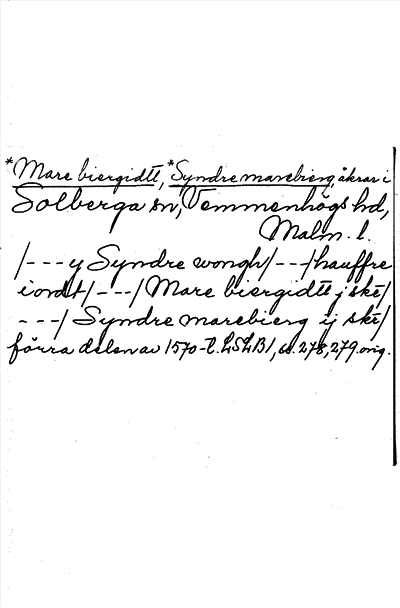 *Mare biergidtt, *Syndre marebierg, åkrar i
Solberga sn, Vemmenhögs hd,
Malm. l.
/---y Syndre wongh/---/hauffre
iordt/---/Mare biergidtt j skē/
---/Syndre marebierg ij skē/
förra delen av 1570-t. LSLB1, s. 278, 279. orig.